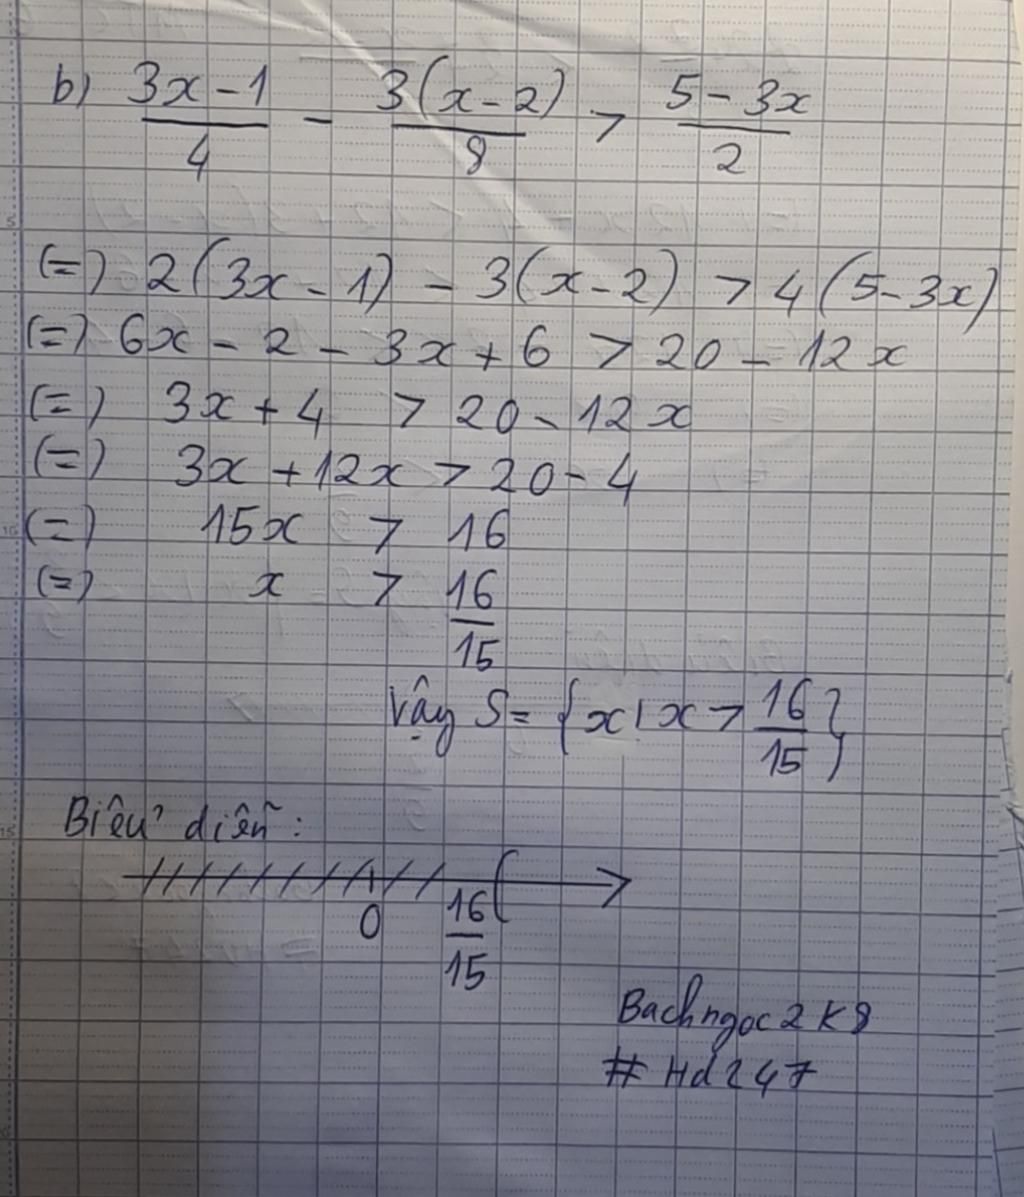 b) \frac{3x-1}{4} - \frac{3(x-2)}{8} > \frac{5-3x}{2}
(=) 2(3x-1) - 3(x-2) > 4(5-3x)
(=) 6x - 2 - 3x + 6 > 20 - 12x
(=) 3x + 4 > 20 - 12x
(=) 3x + 12x > 20 - 4
(=) 15x > 16
(=) x > \frac{16}{15}
Vậy S = {x | x > \frac{16}{15}}
Biểu diễn:
0 \frac{16}{15} (
Bachngoc2k8
# Hd247